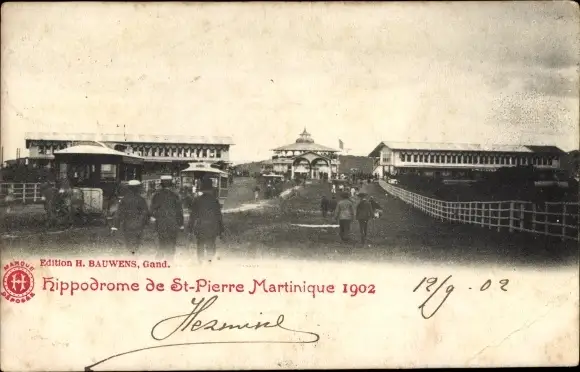 Edition H. BAUWENS, Gand.
MARQUE
H
DÉPOSÉE
Hippodrome de St-Pierre Martinique 1902
12/9 . 02